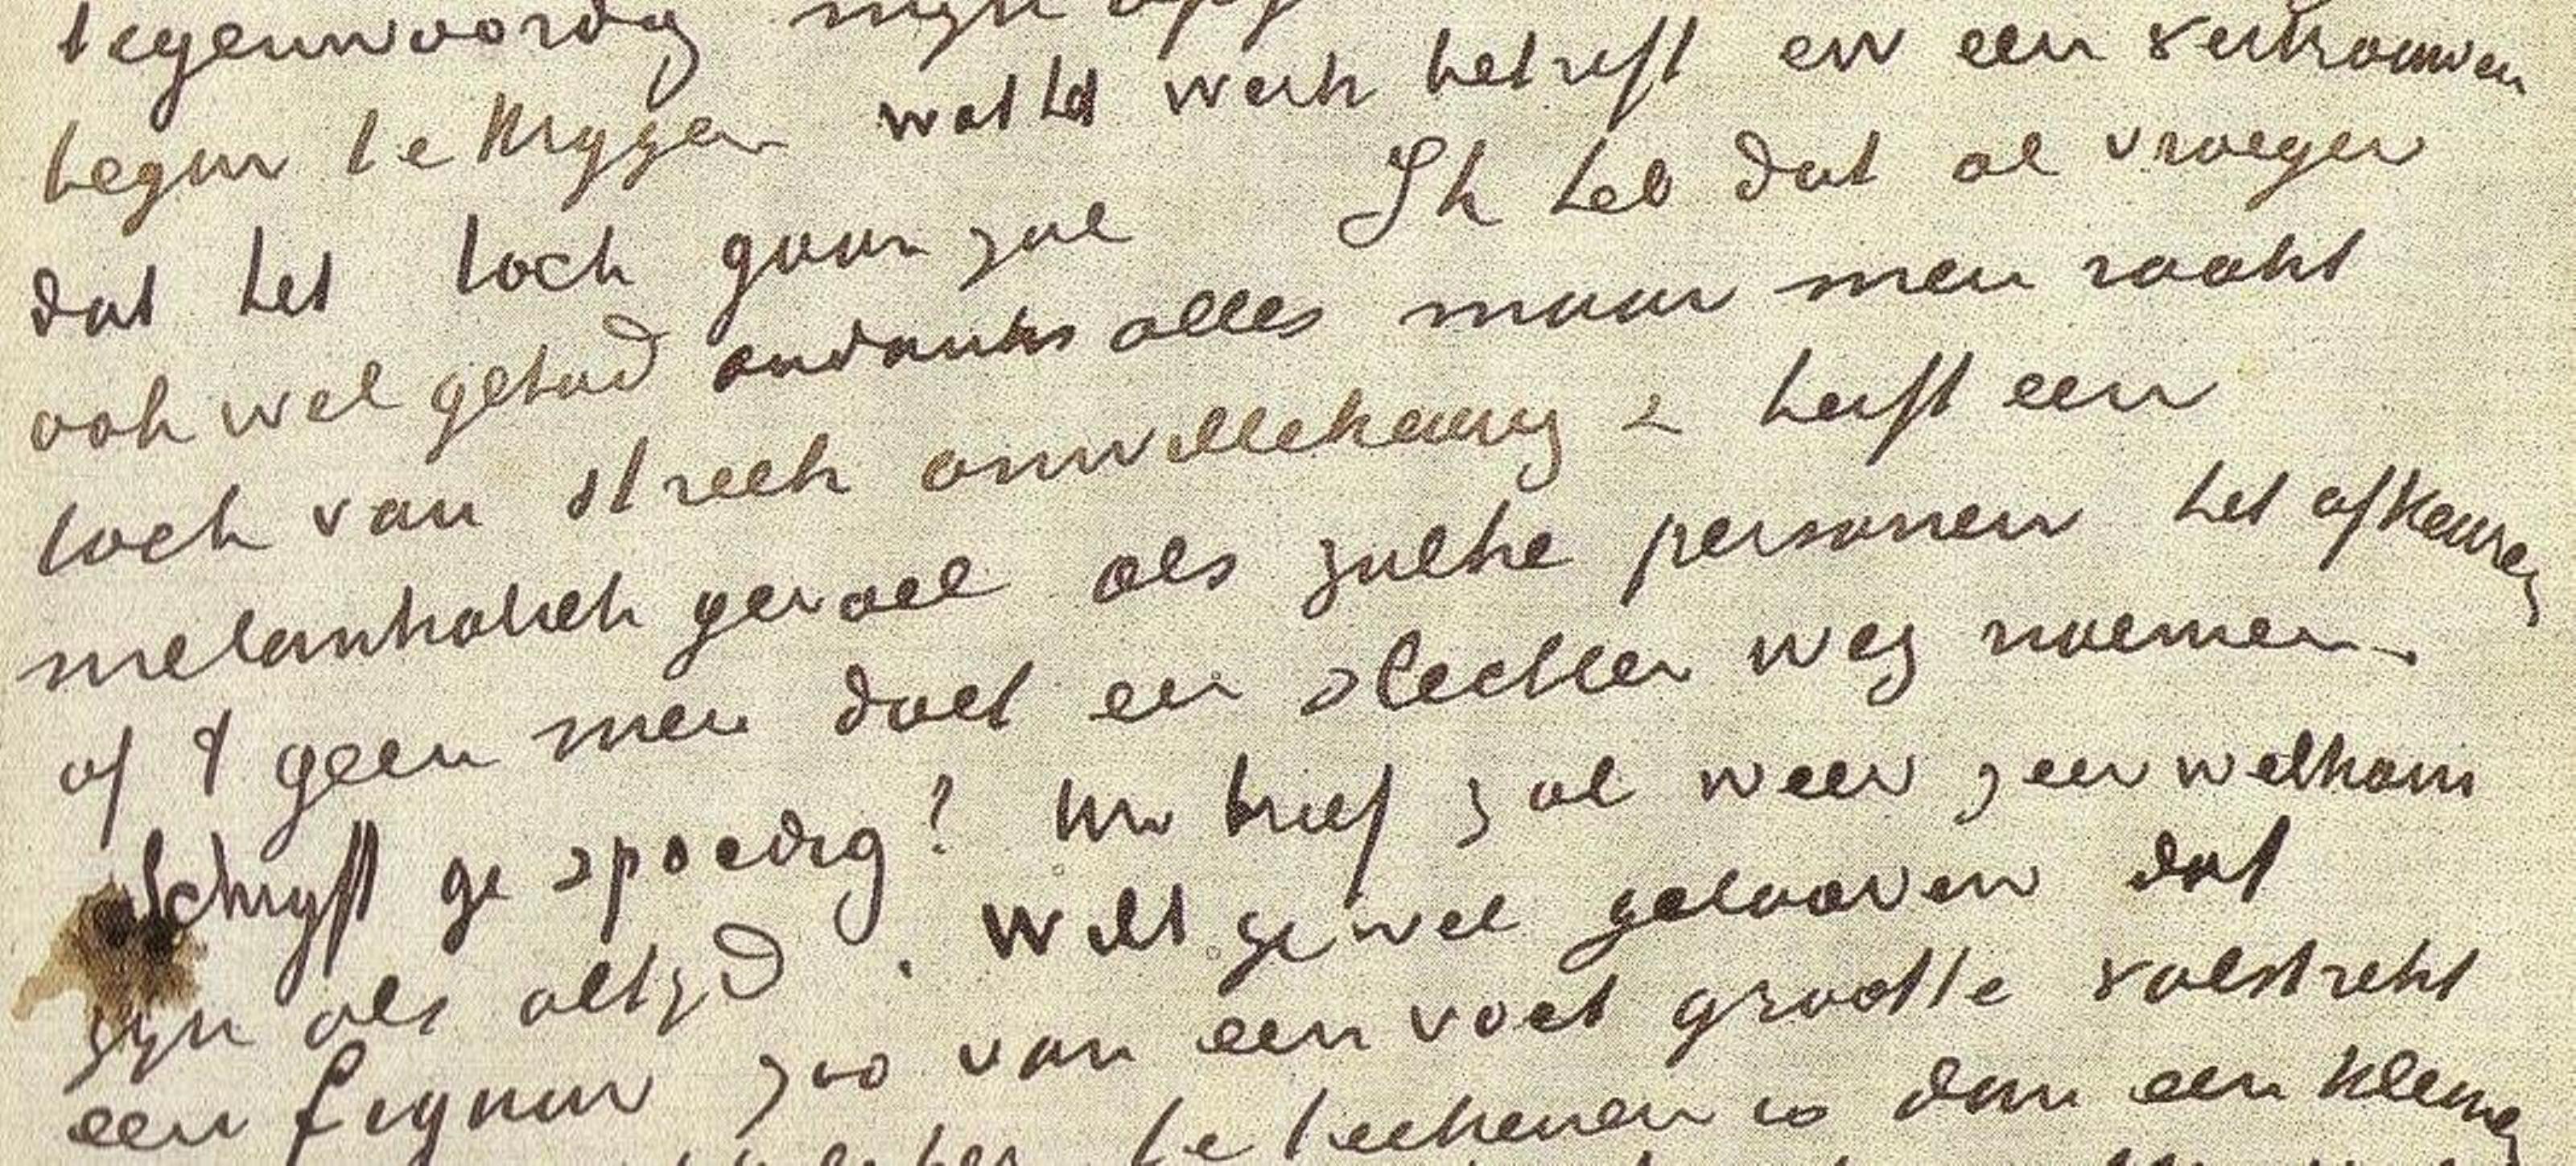 tegenwoordig mijn
begin te krijgen wat het werk betreft en een vertrouwen
dat het toch gaan zal Ik heb dat al vroeger
ook wel gehad ondanks alles maar men raakt
toch van streek onwillekeurig & heeft een
melankoliek gevoel als zulke personen het afkeuren
of 't geen men doet een slechten weg noemen.
Schrijft ge spoedig? Uw brief zal weer zeer welkom
zijn als altijd. Wilt ge wel gelooven dat
een figuur zoo van een voet grootte volstrekt
te teekenen is dan een kleine